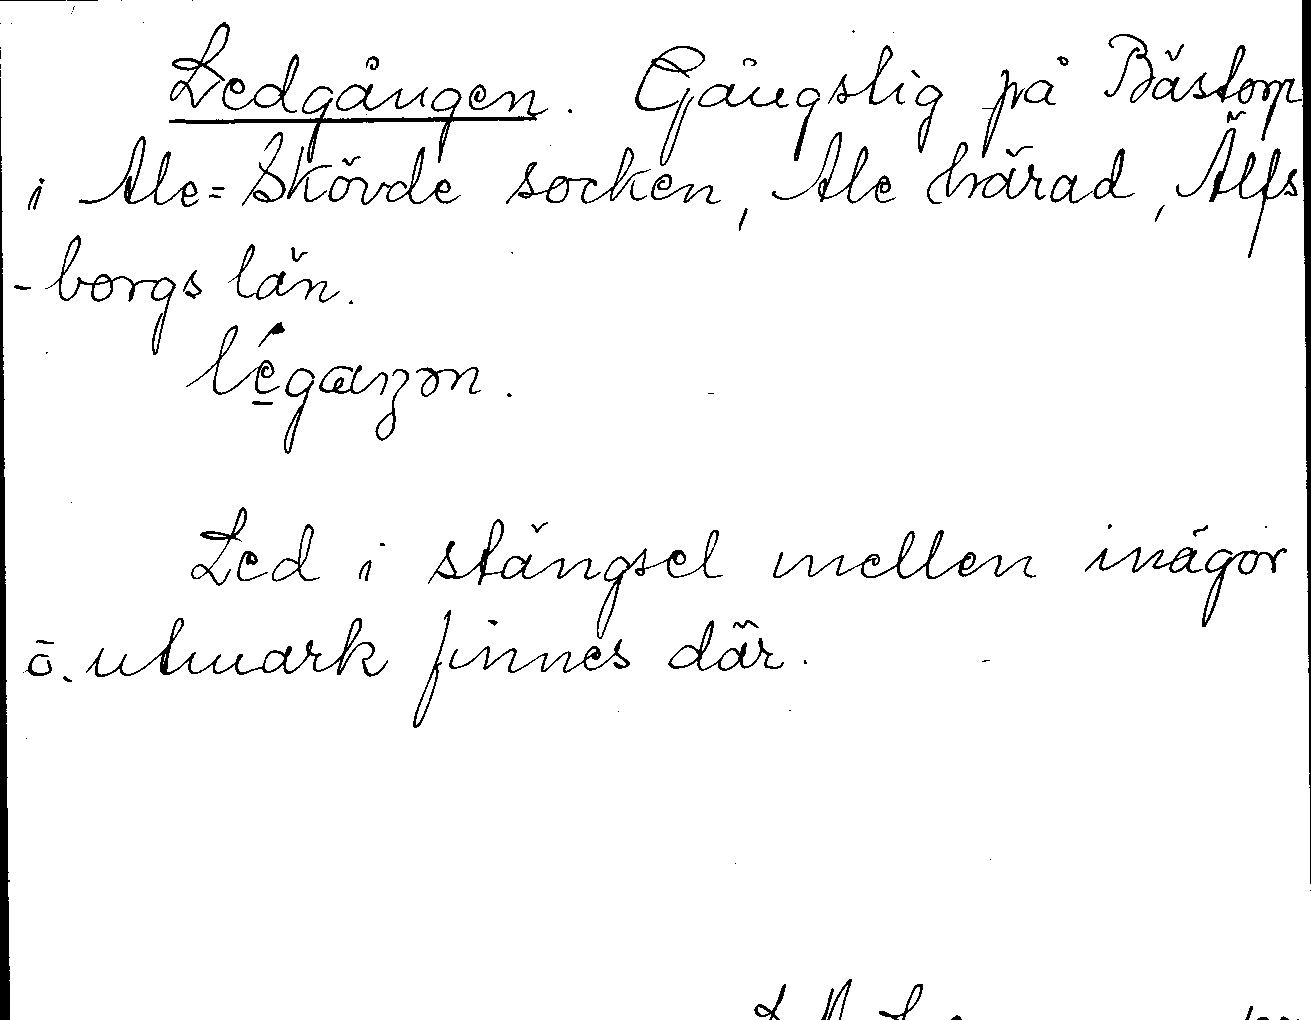 Ledgången. Gångstig på Båstorp
i Ale=Skövde socken, Ale härad, Älfs
-borgs län.
Led i stängsel mellen inägor
o. utmark finnes där.